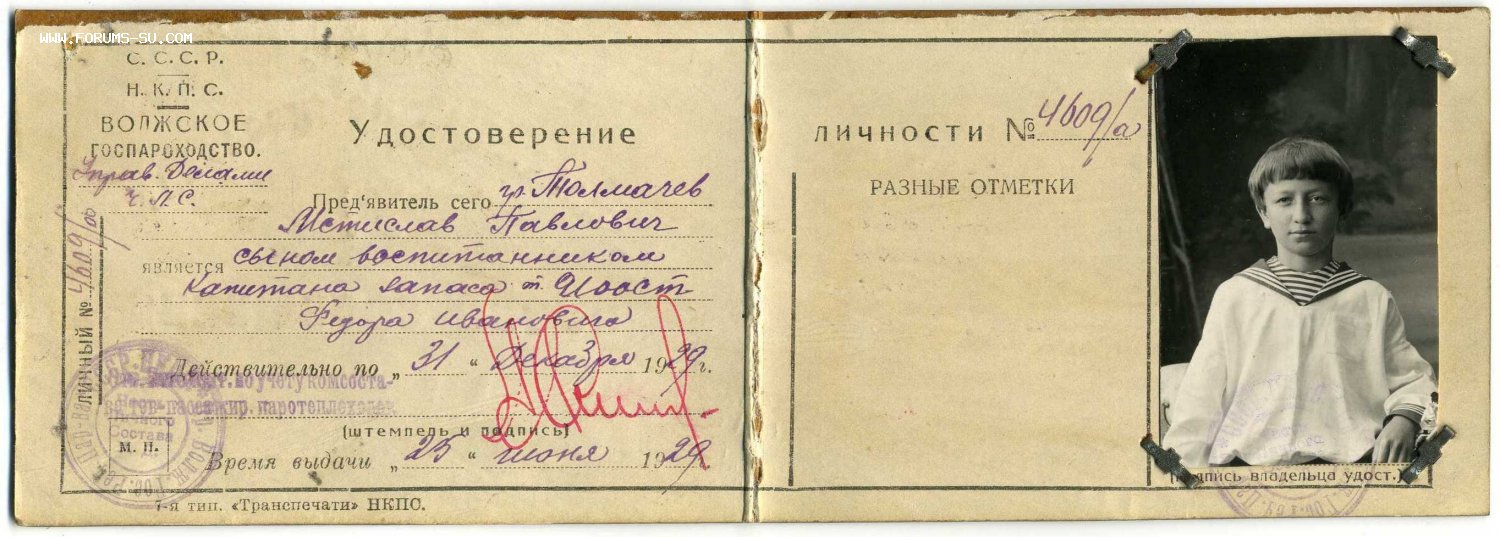 WWW.FORUMS-SU.COM
С. С. С. Р.
Н. К. П. С.
ВОЛЖСКОЕ
ГОСПАРОХОДСТВО.
Управ. Делами
Ч. Л. С.
ЛИЧНЫЙ № 4609/а
Удостоверение
Пред'явитель сего гр. Толмачев
Мстислав Павлович
является сыном воспитанником
Капитана запаса т.
Федора Ивановича
Действительно по „31 “ Декабря 1929 г.
по учету комсоста-
ва тов-пассажир. паротеплоходов
(штемпель и подпись)
Часть
Личного
Состава
М. П.
Время выдачи „25 “ июня 1929
7-я тип. «Транспечати» НКПС.
ЛИЧНОСТИ № 4609/а
РАЗНЫЕ ОТМЕТКИ
(подпись владельца удост.)